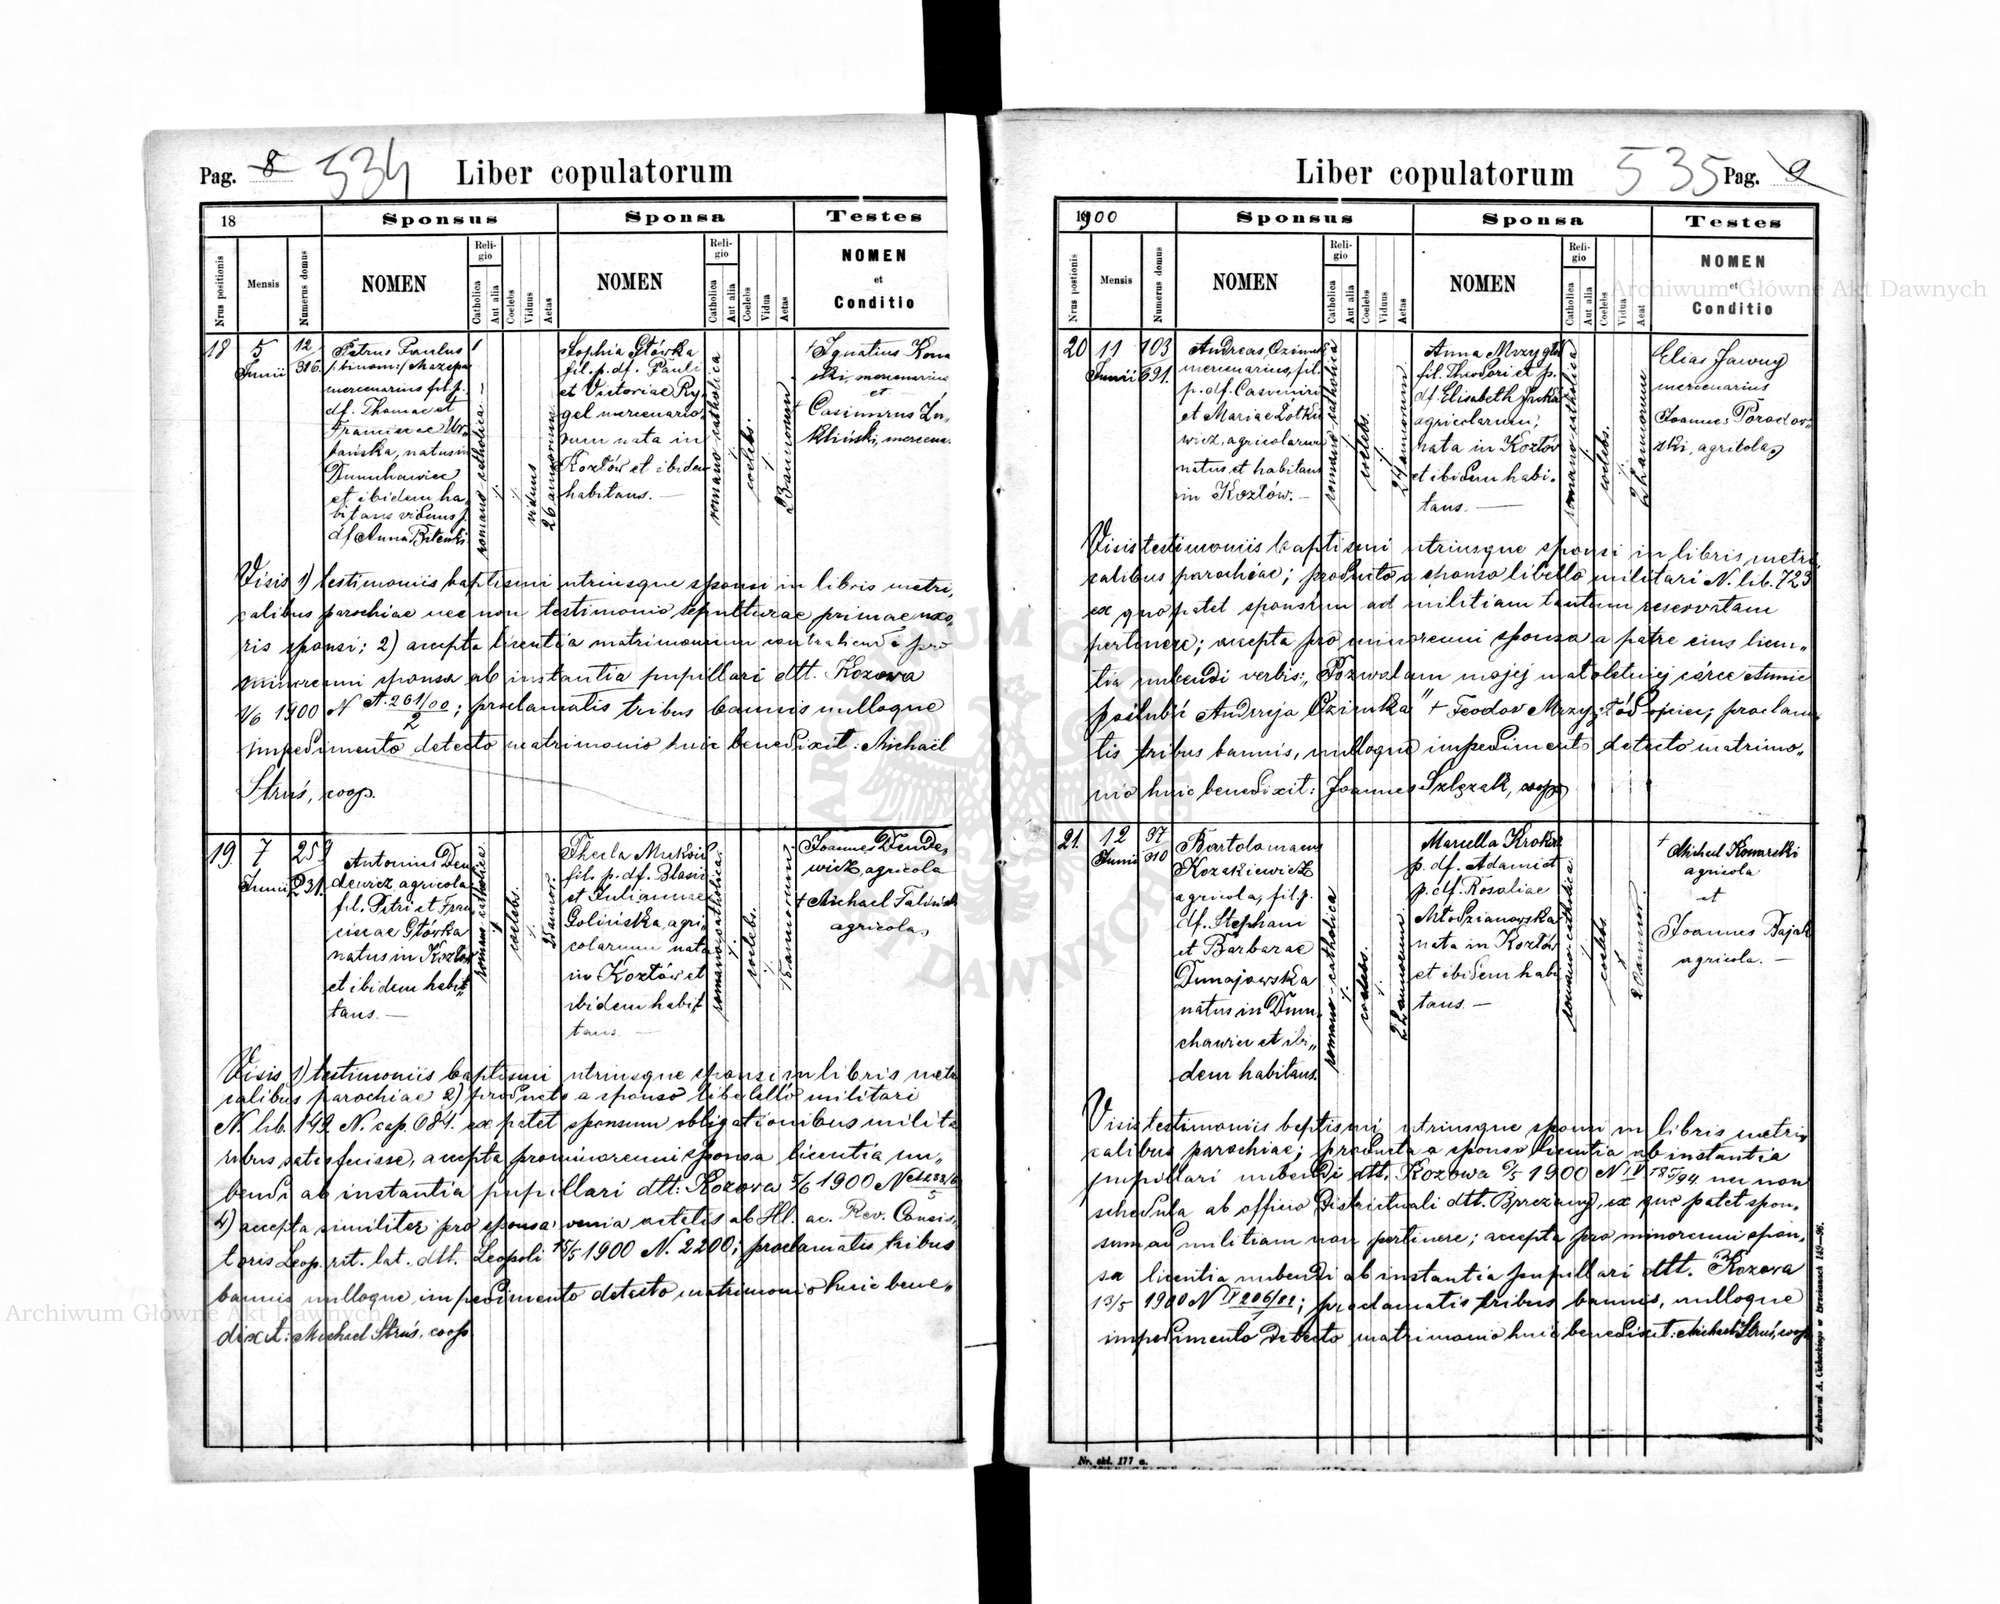 Pag. 8 534 Liber copulatorum
18 Sponsus Sponsa Testes
Nrus positionis Mensis Numerus domus NOMEN Religio Catholica Aut alia Coelebs Viduus Aetas NOMEN Religio Catholica Aut alia Coelebs Vidua Aetas NOMEN et Conditio
18
5
Junii
12
316.
Petrus Paulus
/:binomi:/ Mazepa
mercenarius fil. p.
df. Thomae et
Franciscae
natus in
Dmuchawiec
et ibidem ha,
bitans viduus p.
df Anna
romano-catholica
viduus
26 annorum
Sophia Główka
fil. p. df. Pauli
et Victoriae Ry,
gel mercenario,
rum nata in
Kozłów et ibidem
habitans. —
romano-catholica
coelebs.
23 annorum
† Ignatius Kona
ski, mercenarius
et
† Casimirus
kliński, mercena.
Visis 1) testimoniis baptismi utriusque sponsi in libris metri,
calibus parochiae nec non testimonio sepulturae primae uxo,
ris sponsi; 2) accepta licentia matrimonium contrahendi pro
minorenni sponsa ab instantia pupillari dtt. Kozowa
1/6 1900 N A.261/00/2; proclamatis tribus bannis nulloque
impedimento detecto matrimonio huic benedixit: Michaël
Struś, coop.
19
7
Junii
259
231.
Antonius Den
dewicz, agricola
fil. Petri et Fran
ciscae Główka
natus in Kozłów
et ibidem habit,,
tans. —
romano-catholica
coelebs.
25 annor.
Thecla
fil. p. df. Blasii
et Juliannae
Golińska, agri,
colarum nata
in Kozłów et
ibidem habit
tans. —
romano-catholica.
coelebs.
annorum
Joannes Dende,
wicz, agricola
† Michael
agricola
Visis 1) testimoniis baptismi utriusque sponsi in libris metri
calibus parochiae 2) producto a sponso libello militari
N. lib. 149 N. cap. 684. ex patet sponsum obligationibus milita
ribus satisfecisse, accepta pro minorenni sponsa licentia nu,,
bendi ab instantia pupillari dtt: Kozowa 5/6 1900 N
4) accepta similiter pro sponsa venia aetatis ab Ill. ac. Rev. Consis,
toris Leop. rit. lat. dtt. Leopoli 15/5 1900 N. 2200; proclamatis tribus
bannis nulloque impedimento detecto matrimonio huic bene,,
dixit: Michael Struś, coop
Liber copulatorum 535 Pag. 9
1900 Sponsus Sponsa Testes
Nrus positionis Mensis Numerus domus NOMEN Religio Catholica Aut alia Coelebs Viduus Aetas NOMEN Religio Catholica Aut alia Coelebs Vidua Aeat NOMEN et Conditio
20
11
Junii
103
691.
Andreas Ozimek
mercenarius, fil.
p. df. Casimiri
et Mariae Żołkie
wicz, agricolarum
natus et habitans
in Kozłów. —
romano-catholica
coelebs.
24 annorum
Anna Mrzygłód
fil. Theodori et p.
df. Elisabeth
agricolarum;
nata in Kozłów
et ibidem habi.
tans. —
romano-catholica
coelebs.
annorum
Elias Jawny
mercenarius
Joannes Porodow
ski, agricola
Visis testimoniis baptismi utriusque sponsi in libris metri
calibus parochiae; producto a sponso libello militari N. lib. 723
ex quo patet sponsum ad militiam tantum reservatam
pertinere; accepta pro minorenni sponsa a patre eius licen,,
tia nubendi verbis: „Pozwalam mojej małoletniej córce Annie
poślubić Andrzeja Ozimka" † Teodor Mrzygłód ojciec; proclama
tis tribus bannis, nulloque impedimento detecto matrimo,,
nio huic benedixit: Joannes Szlęzak, coop
21
12
Junii
37
310
Bartolomaeus
Kozakiewicz
agricola, fil. p.
df. Stephani
et Barbarae
Dunajowska
natus in Dmu
chawiec et ibi,,
dem habitans.
romano-catholica
coelebs.
annorum
Marcella
p. df. Adami et
p. df. Rosaliae
Młodzianowska
nata in Kozłów
et ibidem habi
tans. —
romano-catholica
coelebs
20 annor.
† Michael Konarski
agricola
et
Joannes Bajak
agricola. —
Visis testimoniis baptismi utriusque sponsi in libris metri,
calibus parochiae; producta a sponso licentia ab instantia
pupillari nubendi dtt. Kozowa 1900 N nec non
schedula ab officio Districtuali dtt. Brzeżany, ex quo patet spon,
sum ad militiam non pertinere; accepta pro minorenni spon,
sa licentia nubendi ab instantia pupillari dtt. Kozowa
13/5 1900 N; proclamatis tribus bannis, nulloque
impedimento detecto matrimonio huic benedixit: Michael Struś, coop
Nr. okl. 177 a.
Z drukarni A. Cichockiego w Brzeżanach 149—96.
Archiwum Główne Akt Dawnych
Archiwum Główne Akt Dawnych
ARCHIWUM GŁÓWNE AKT DAWNYCH